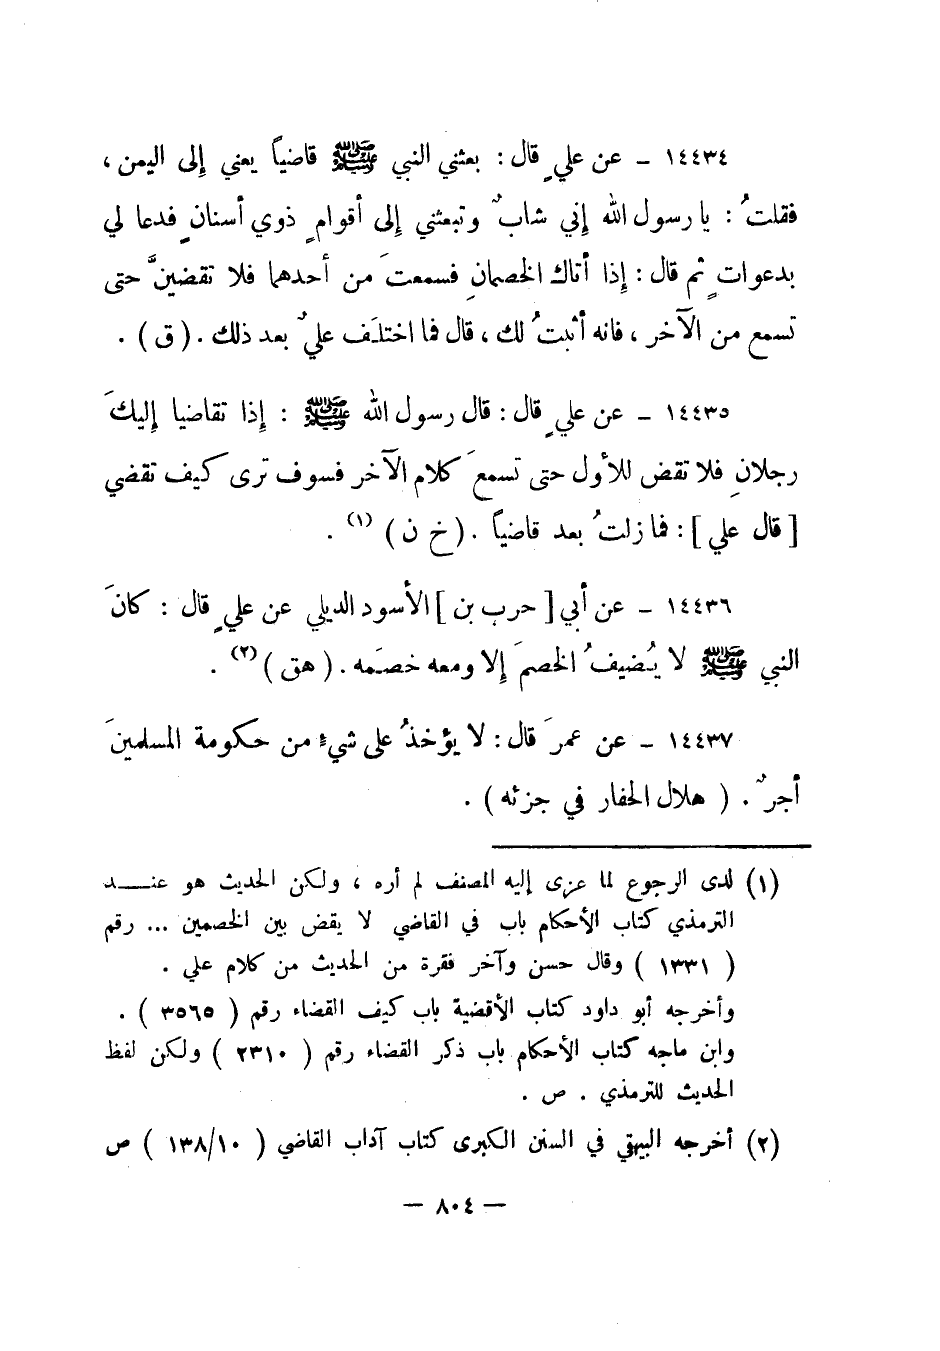 ١٤٤٣٤ - عن عليٍ قال : بعثني النبي ﷺ قاضياً يعني إلى اليمن ،
فقلتُ : يا رسول الله إني شابٌ وتبعثني إلى أقوامٍ ذوي أسنانٍ فدعا لي
بدعواتٍ ثم قال : إذا أتاك الخصمانِ فسمعتَ من أحدهما فلا تقضينَّ حتى
تسمع من الآخر ، فانه أثبتُ لك ، قال فما اختلَف عليٌ بعد ذلك . ( ق ) .
١٤٤٣٥ - عن عليٍ قال : قال رسول الله ﷺ : إذا تقاضيا إليكَ
رجلانِ فلا تقض للأول حتى تسمعَ كلام الآخر فسوف ترى كيف تقضي
[ قال علي ] : فما زلتُ بعد قاضياً . ( خ ن ) (١) .
١٤٤٣٦ - عن أبي [ حرب بن ] الأسود الديلي عن عليٍ قال : كانَ
النبي ﷺ لا يُضيفُ الخصمَ إلا ومعه خصمَه . ( هق ) (٢) .
١٤٤٣٧ - عن عمرَ قال : لا يؤخذُ على شيءٍ من حكومة المسلمينَ
أجرٌ . ( هلال الحفار في جزئه ) .
(١) لدى الرجوع لما عزى إليه المصنف لم أره ، ولكن الحديث هو عنـــد
الترمذي كتاب الأحكام باب في القاضي لا يقض بين الخصمين ... رقم
( ١٣٣١ ) وقال حسن وآخر فقرة من الحديث من كلام علي .
وأخرجه أبو داود كتاب الأقضية باب كيف القضاء رقم ( ٣٥٦٥ ) .
وابن ماجه كتاب الأحكام باب ذكر القضاء رقم ( ٢٣١٠ ) ولكن لفظ
الحديث للترمذي . ص .
(٢) أخرجه البيهقي في السنن الكبرى كتاب آداب القاضي ( ١٣٨/١٠ ) ص
— ٨٠٤ —